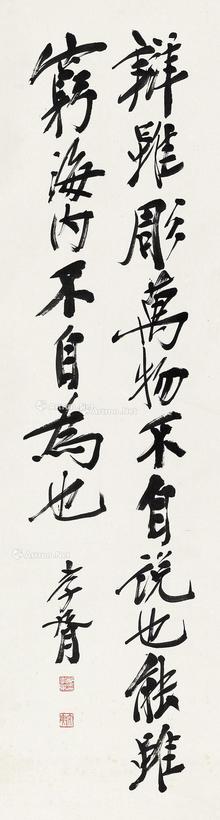 辯雖彫萬物不自說也能雖
窮海內不自為也
孝胥